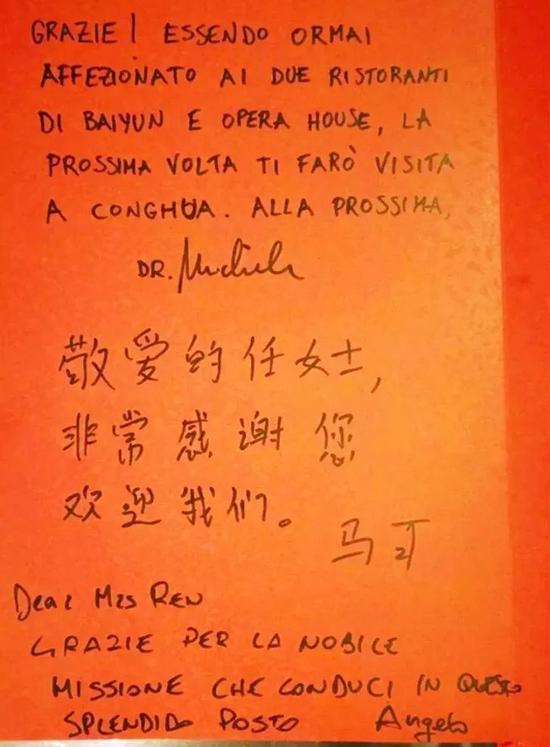 GRAZIE! ESSENDO ORMAI
AFFEZIONATO AI DUE RISTORANTI
DI BAIYUN E OPERA HOUSE, LA
PROSSIMA VOLTA TI FARÒ VISITA
A CONGHUA. ALLA PROSSIMA,
DR. Michele
敬爱的任女士,
非常感谢您
欢迎我们。
马可
Dear Mrs Ren
GRAZIE PER LA NOBILE
MISSIONE CHE CONDUCI IN QUESTO
SPLENDIDO POSTO Angelo